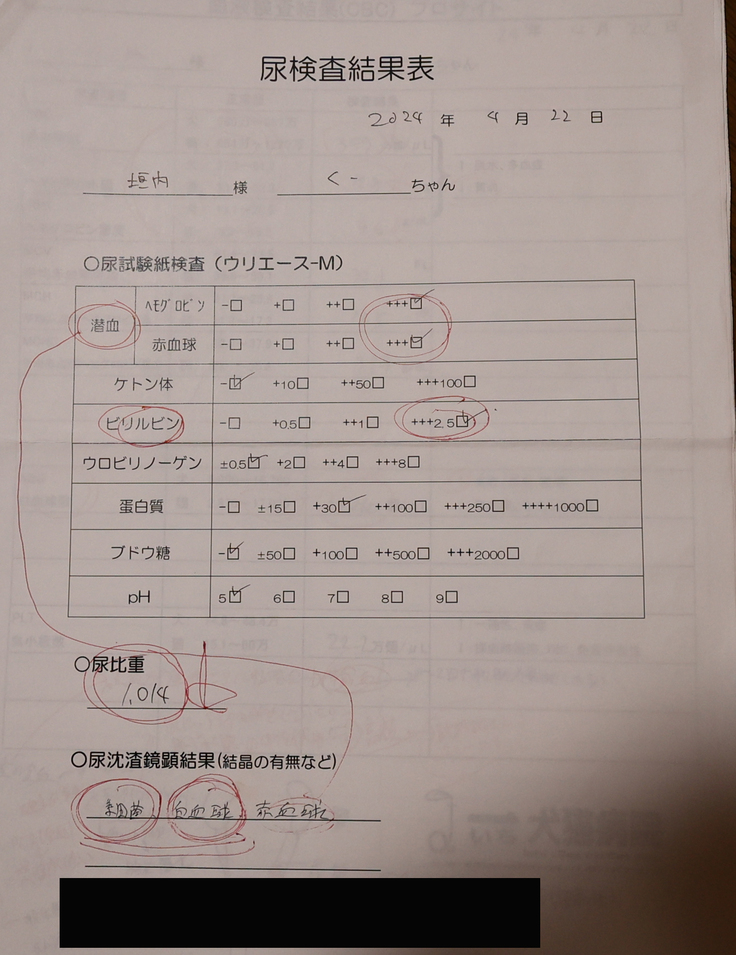 尿検査結果表
2024 年 4 月 22 日
垣内 様 くー ちゃん
○尿試験紙検査（ウリエース-M）
潜血 ﾍﾓｸﾞﾛﾋﾞﾝ -□ +□ ++□ +++☑
赤血球 -□ +□ ++□ +++☑
ケトン体 -☑ +10□ ++50□ +++100□
ビリルビン -□ +0.5□ ++1□ +++2.5☑
ウロビリノーゲン ±0.5☑ +2□ ++4□ +++8□
蛋白質 -□ ±15□ +30☑ ++100□ +++250□ ++++1000□
ブドウ糖 -☑ ±50□ +100□ ++500□ +++2000□
pH 5☑ 6□ 7□ 8□ 9□
○尿比重
1.014
○尿沈渣鏡顕結果(結晶の有無など)
細菌 白血球 赤血球